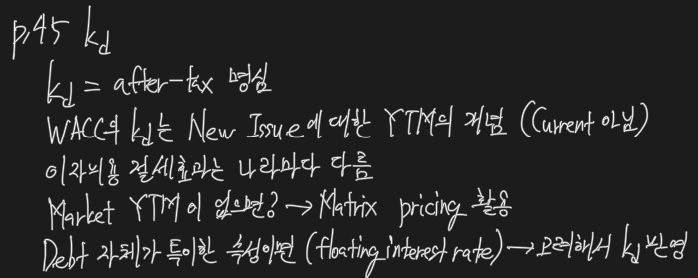 p.45 kd
kd = after-tax 명심
WACC의 kd는 New Issue에 대한 YTM의 개념 (Current 아님)
이자비용 절세효과는 나라마다 다름
Market YTM이 없으면? → Matrix pricing 활용
Debt 자체가 특이한 속성이면 (floating interest rate) → 고려해서 kd 반영